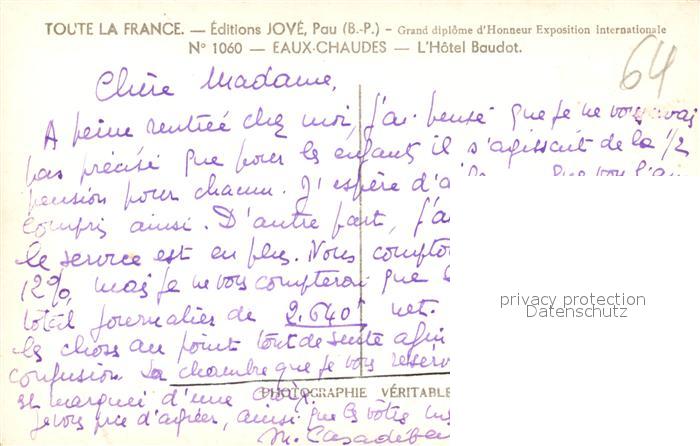 TOUTE LA FRANCE. — Éditions JOVÉ, Pau (B.-P.) - Grand diplôme d'Honneur Exposition internationale
N° 1060 — EAUX-CHAUDES — L'Hôtel Baudot.
64
Chère Madame,
A peine rentrée chez moi, j'ai pensé que je ne vous avai
pas précisé que pour les enfants il s'agissait de la 1/2
pension pour chacun. J'espère d'a
compris ainsi. D'autre part, j'a
le service est en plus. Nous compto
12%, mais je ne vous compterai que
total journalier de 2.640f net.
les choses au point tout de suite afin
confusion. La chambre que je vous réserv
est marquée d'une
Je vous prie d'agréer, ainsi que les vôtres, m
M. Casadeba
PHOTOGRAPHIE VÉRITABLE
privacy protection
Datenschutz